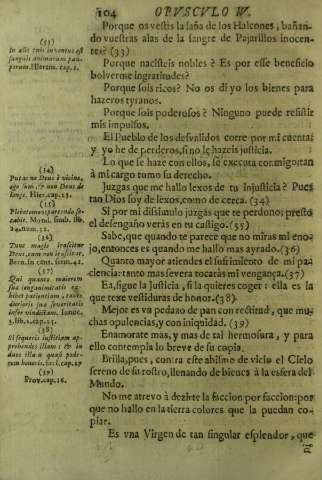 104 OPVSCVLO IV.
Porque os vestis la saña de los Halcones, bañan-
do vuestras alas de la sangre de Pajarillos inocen-
tes? (33)
Porque nacisteis nobles? Es por esse beneficio
bolverme ingratitudes?
Porque sois ricos? No os di yo los bienes para
hazeros tyranos.
Porque sois poderosos? Ninguno puede resistir
mis impulsos.
El Pueblo de los desvalidos corre por mi cuenta;
y yo he de perderos, si no le hazeis justicia.
Lo que se haze con ellos, se executa conmigo; tan
à mi cargo tomo su derecho.
Juzgas que me hallo lexos de tu injusticia? Pues
tan Dios soy de lexos, como de cerca. (34)
Si por mi dissimulo juzgàs que te perdono; presto
el desengaño veràs en tu castigo. (35)
Sabe, que quando te parece que no miras mi eno-
jo, entonces es quando me hallo mas ayrado. (36)
Quanto mayor atiendes el sufrimiento de mi pa-
ciencia: tanto mas severa tocaràs mi vengança. (37)
Ea, sigue la Justicia, si la quieres coger: ella es la
que texe vestiduras de honor. (38)
Mejor es vn pedazo de pan con rectitud, que mu-
chas opulencias, y con iniquidad. (39)
Enamorate mas, y mas de tal hermosura, y para
ello contempla lo breve de su copia.
Brilla, pues, contra este abismo de vicio el Cielo
sereno de su rostro, llenando de bienes à la esfera del
Mundo.
No me atrevo à dezirte la faccion por faccion: por-
que no hallo en la tierra colores que la puedan co-
piar.
Es vna Virgen de tan singular esplendor, que
(33)
In alis tuis inventus est
sanguis animarum pau-
perum. Hierem. cap. 2.
(34)
Putas ne Deus è vicino,
ego sum, & non Deus de
longè. Hier. cap. 23.
(35)
lib.
24. num. 32.
(36)
Tunc magis irascitur
Deus, cum non irascitur,
Bern. In cant. serm. 42.
(37)
Qui quanto maiorem
sua longanimitatis ex-
hibet patientiam, tanto
durioris sua severitatis
infer vindictam. Innoc.
3. lib. 2. cap. 15.
(38)
Si sequeris iustitiam ap-
prehendes illam: & in-
dues illa quasi pode-
rem honoris. Eccl. cap. 27
(39)
Prov. cap. 16.